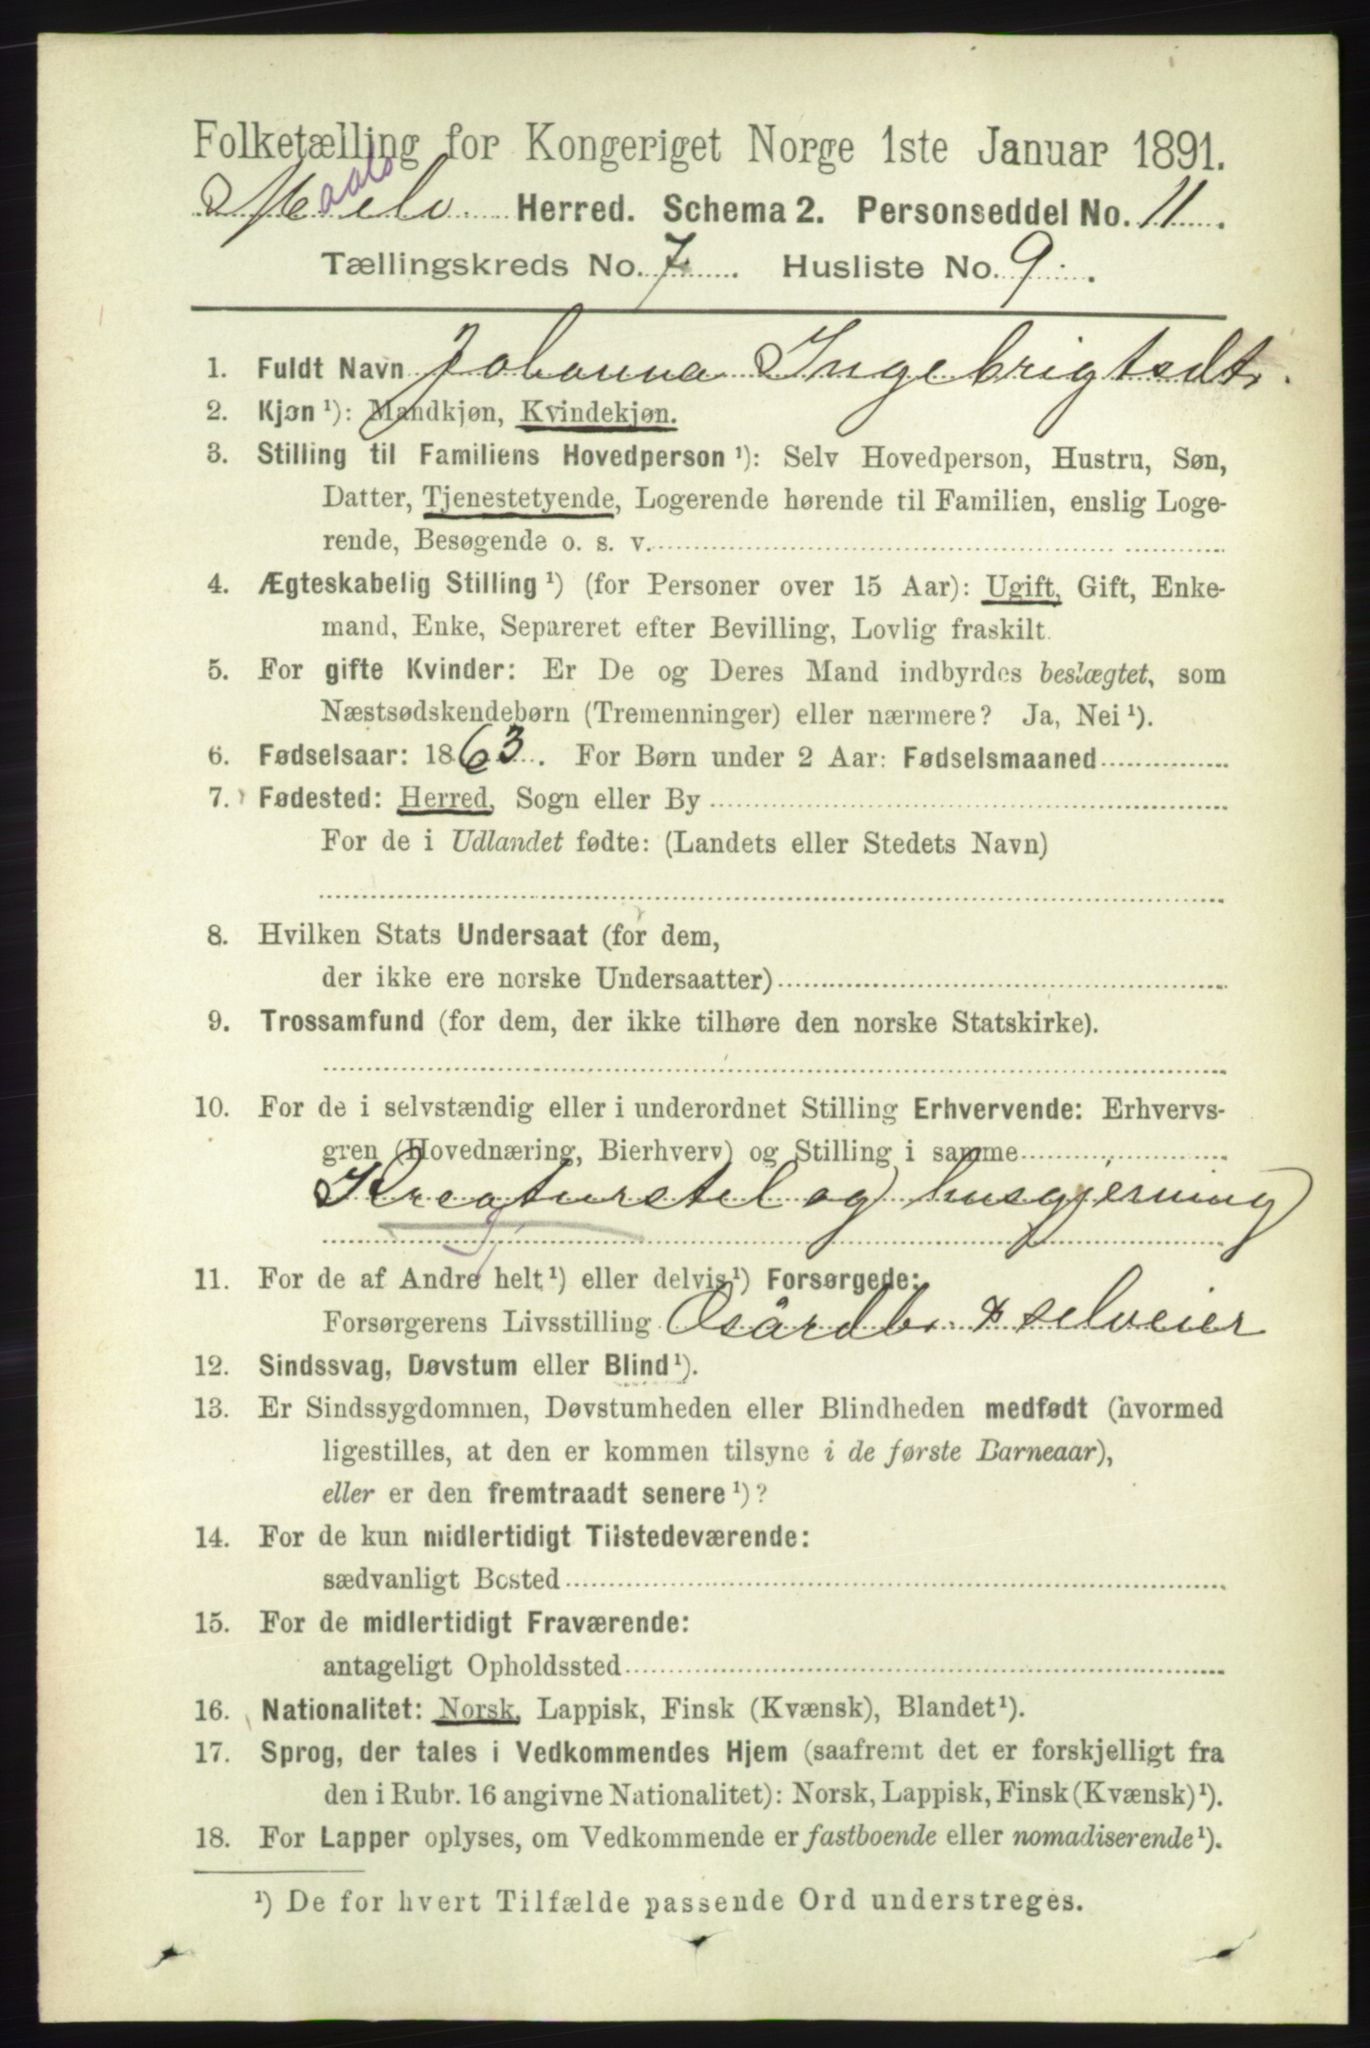 Folketælling for Kongeriget Norge 1ste Januar 1891.
Maalselv Herred. Schema 2. Personseddel No. 11.
Tællingskreds No. 7. Husliste No. 9.
1. Fuldt Navn Johanna Ingebrigtsdt.
2. Kjøn ¹): Mandkjøn, Kvindekjøn.
3. Stilling til Familiens Hovedperson ¹): Selv Hovedperson, Hustru, Søn,
Datter, Tjenestetyende, Logerende hørende til Familien, enslig Loge-
rende, Besøgende o. s. v.
4. Ægteskabelig Stilling ¹) (for Personer over 15 Aar): Ugift, Gift, Enke-
mand, Enke, Separeret efter Bevilling, Lovlig fraskilt.
5. For gifte Kvinder: Er De og Deres Mand indbyrdes beslægtet, som
Næstsødskendebørn (Tremenninger) eller nærmere? Ja, Nei ¹).
6. Fødselsaar: 1863. For Børn under 2 Aar: Fødselsmaaned
7. Fødested: Herred, Sogn eller By
For de i Udlandet fødte: (Landets eller Stedets Navn)
8. Hvilken Stats Undersaat (for dem,
der ikke ere norske Undersaatter)
9. Trossamfund (for dem, der ikke tilhøre den norske Statskirke).
10. For de i selvstændig eller i underordnet Stilling Erhvervende: Erhvervs-
gren (Hovednæring, Bierhverv) og Stilling i samme
Kreaturstel og husgjerning
11. For de af Andre helt ¹) eller delvis ¹) Forsørgede:
Forsørgerens Livsstilling Gårdbr. & selveier
12. Sindssvag, Døvstum eller Blind ¹).
13. Er Sindssygdommen, Døvstumheden eller Blindheden medfødt (hvormed
ligestilles, at den er kommen tilsyne i de første Barneaar),
eller er den fremtraadt senere ¹)?
14. For de kun midlertidigt Tilstedeværende:
sædvanligt Bosted
15. For de midlertidigt Fraværende:
antageligt Opholdssted
16. Nationalitet: Norsk, Lappisk, Finsk (Kvænsk), Blandet ¹).
17. Sprog, der tales i Vedkommendes Hjem (saafremt det er forskjelligt fra
den i Rubr. 16 angivne Nationalitet): Norsk, Lappisk, Finsk (Kvænsk) ¹).
18. For Lapper oplyses, om Vedkommende er fastboende eller nomadiserende ¹).
¹) De for hvert Tilfælde passende Ord understreges.